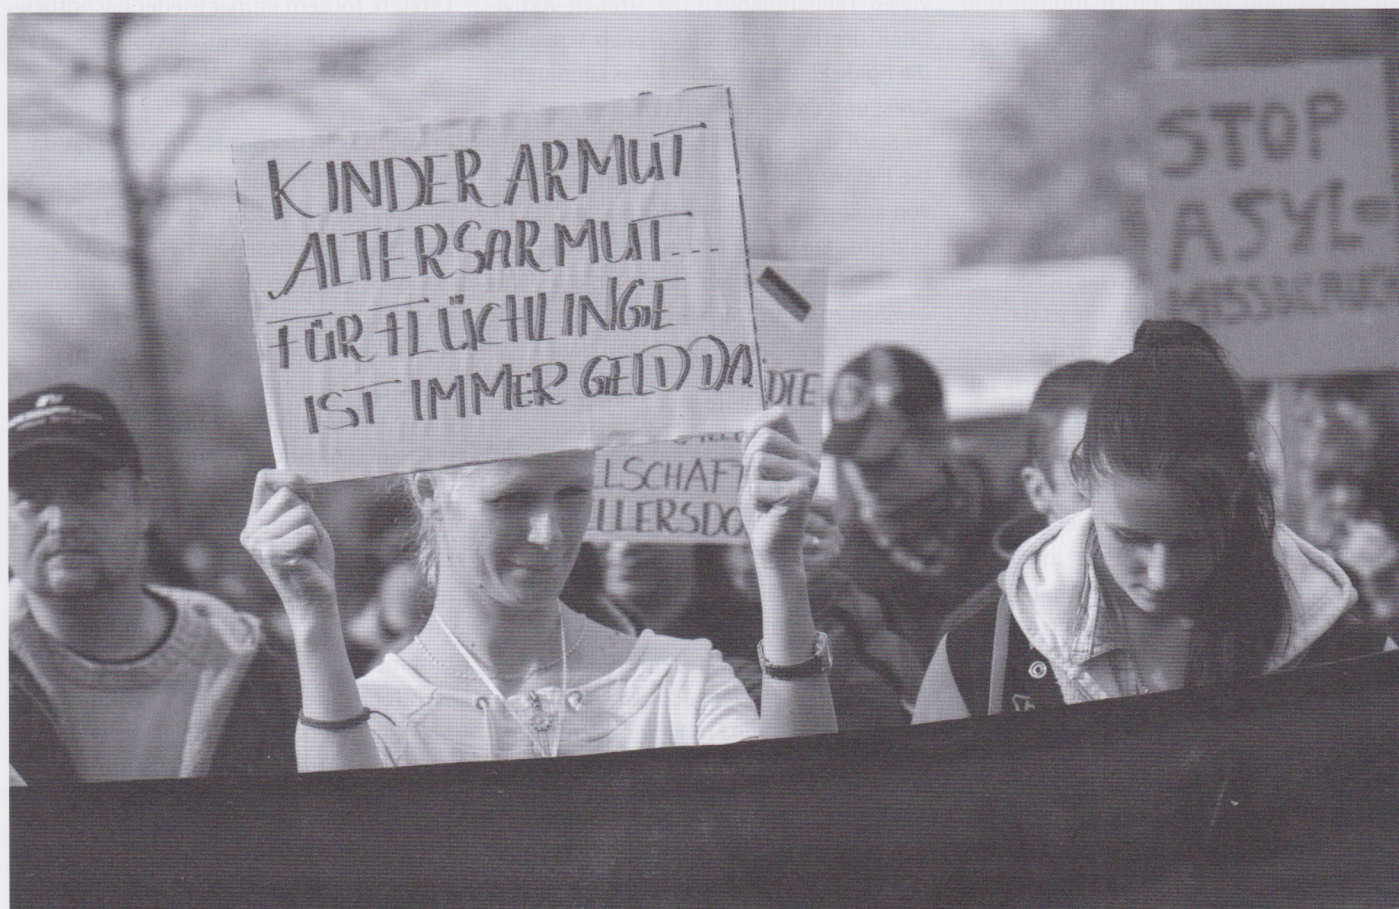 KINDER ARMUT
ALTERSARMUT...
FÜR FLÜCHLINGE
IST IMMER GELD DA
STOP
ASYL-
MISSBRAUCH
DTE
LSCHAFT
LLERSDO